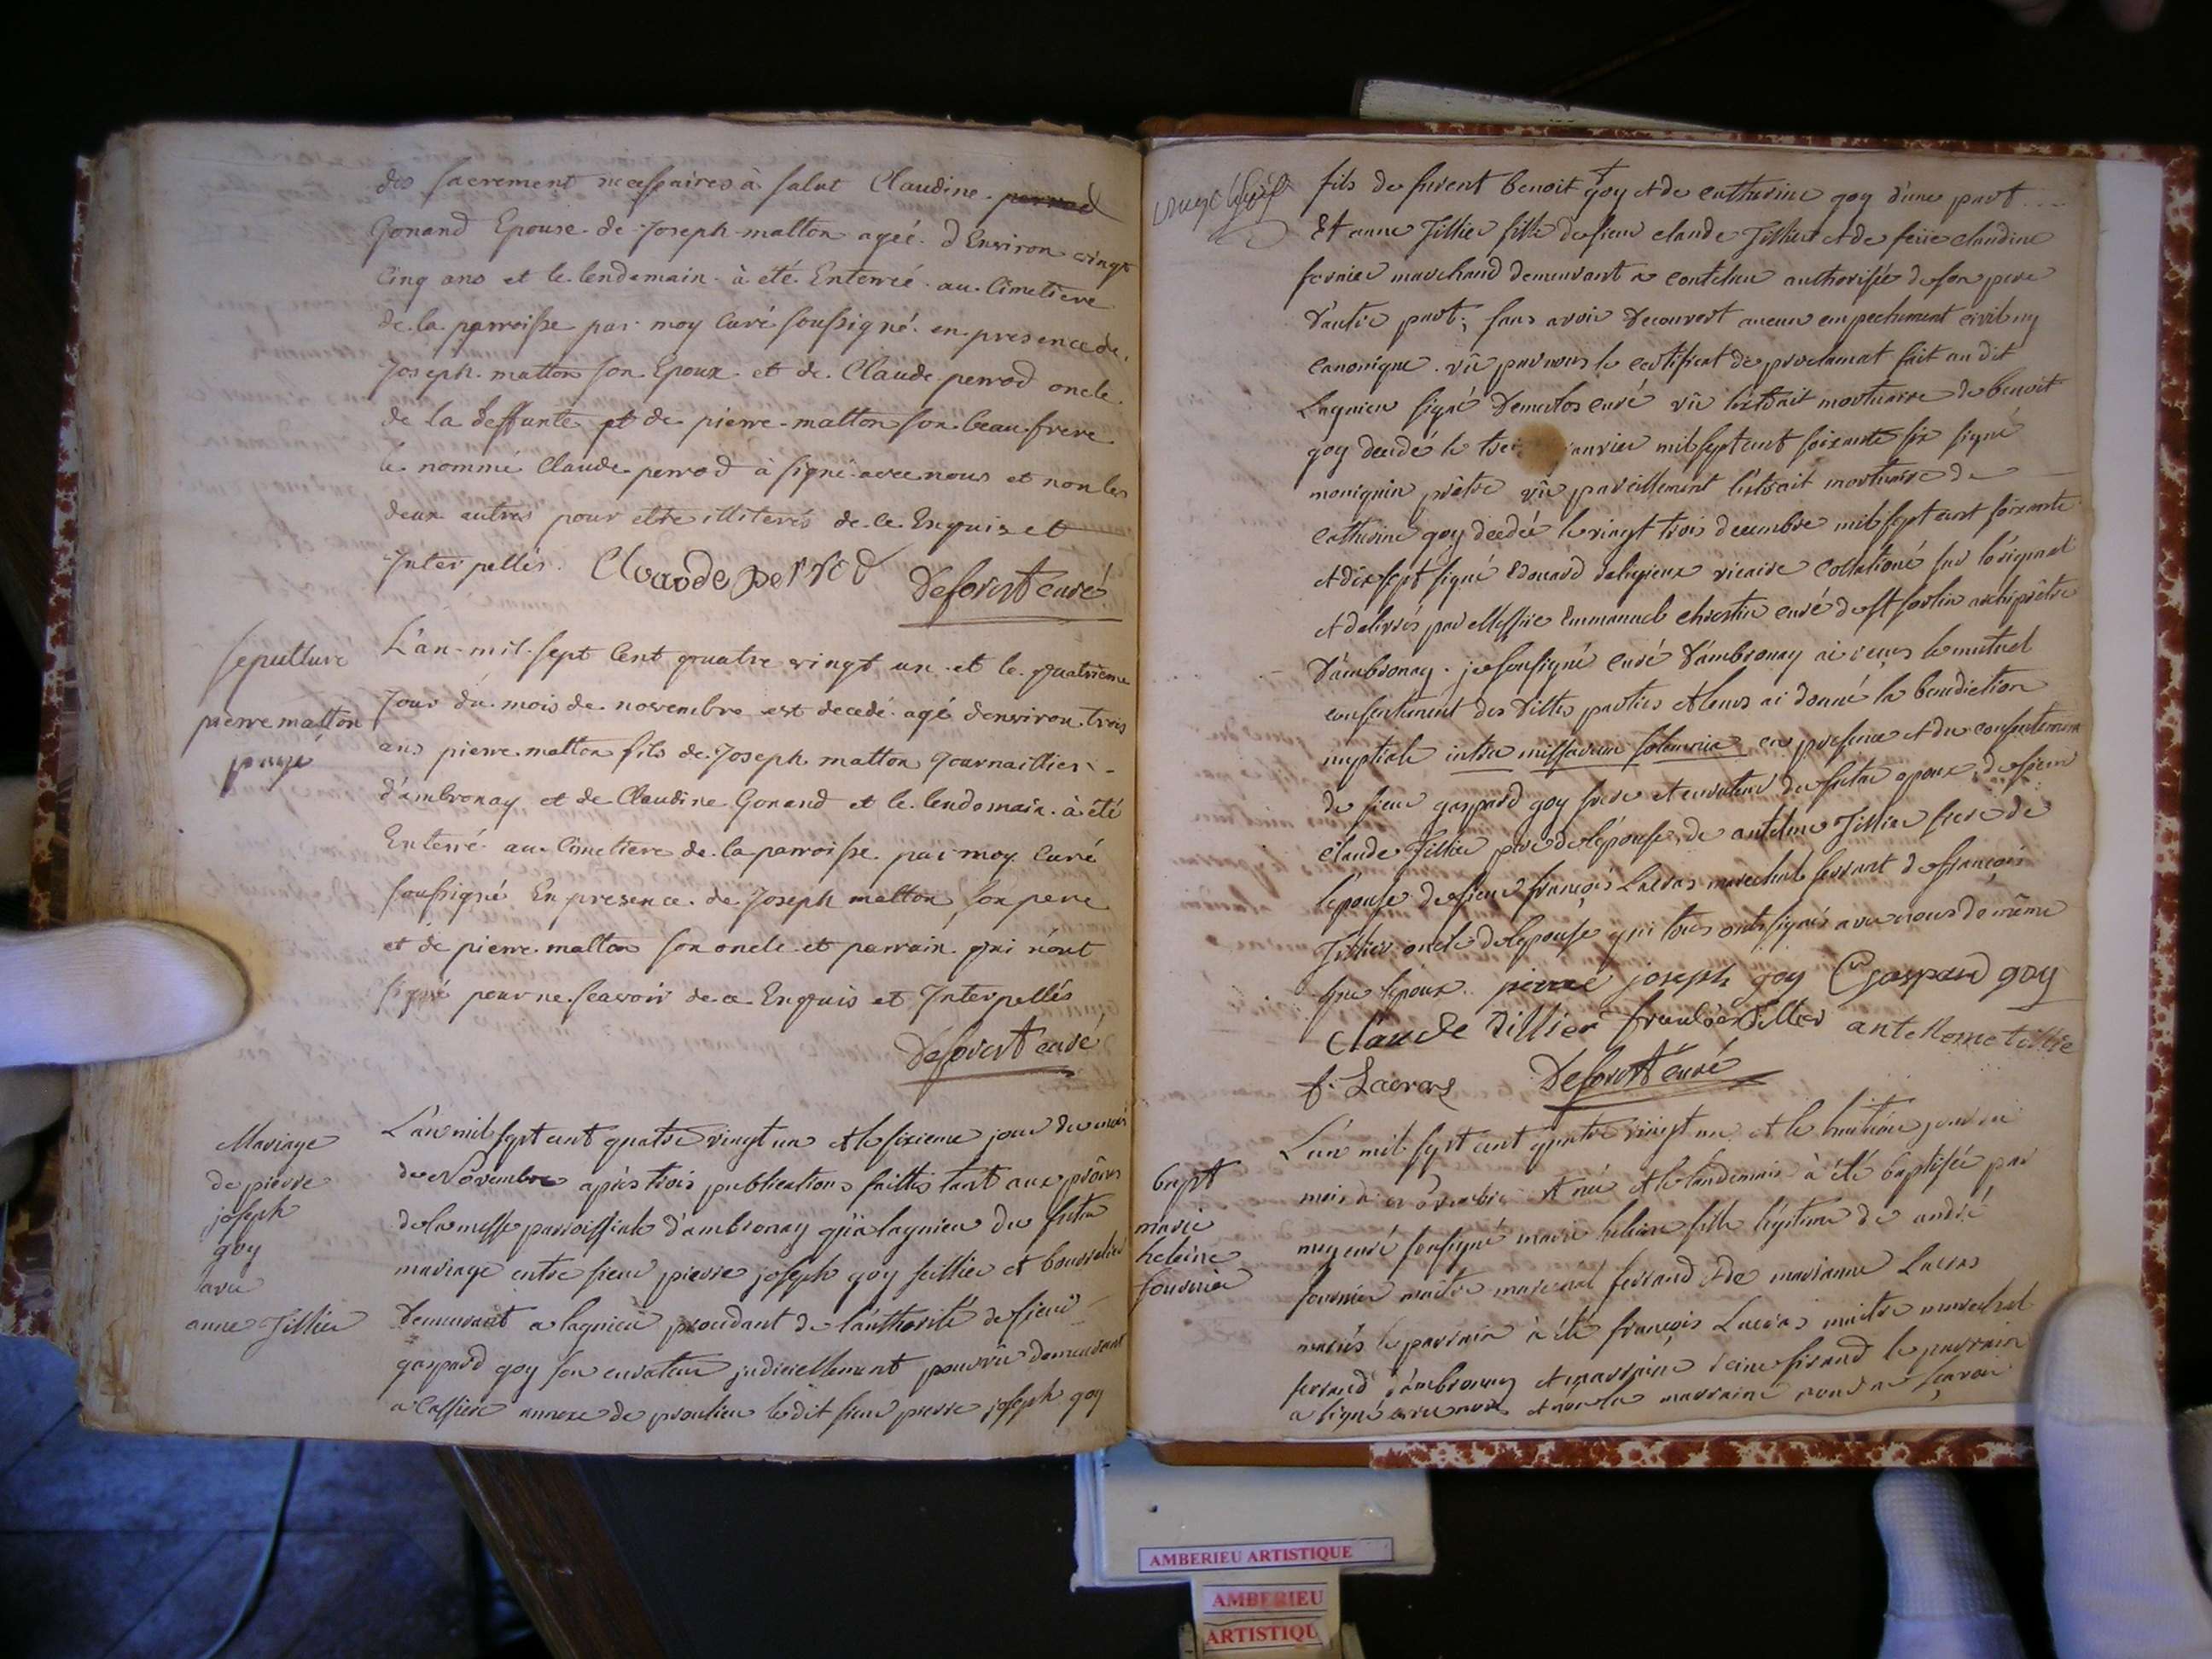 des sacrement necessaires à salut Claudine
Gonand Epouse de Joseph matton ageé d'Environ vingt
Cinq ans et le lendemain à été Enterreé au Cimetiere
de la parroisse par moy Curé soussigné en presence de
Joseph matton son Epoux et de Claude perrod oncle
de la deffunte et de pierre matton son beau frere
le nommé Claude perrod à signé avec nous et non les
deux autres pour etre illiterés de ce Enquis et
Interpellés. Claude perrod Deforest curé
Sepulture
pierre matton
payé
L'an mil sept Cent quatre vingt un et le quatrieme
Jour du mois de novembre est decedé agé d'environ trois
ans pierre matton fils de Joseph matton Journaillier
d'ambronay et de Claudine Gonand et le lendemain à été
Enterré au Cimetiere de la parroisse par moy Curé
soussigné En presence de Joseph matton son pere
et de pierre matton son oncle et parrain qui n'ont
signé pour ne scavoir de ce Enquis et Interpellés
Deforest curé
Mariage
de pierre
joseph
goy
avec
anne Tillier
L'an mil sept cent quatre vingt un et le sixieme jour du mois
de Novembre après trois publications faittes tant aux prônes
de la messe parroissiale d'ambronay qu'a lagnieu du futur
mariage entre sieur pierre joseph goy sellier et bourrelier
demeurant a lagnieu procedant de l'authorité de sieur
gaspard goy son curateur judiciellement pourvu demeurant
a annexe de proulieu le dit sieur pierre joseph goy
fils de furent benoit goy et de catherine goy d'une part
Et anne Tillier fille de sieur claude Tillier et de feüe claudine
marchand demeurant a authorisée de son pere
d'autre part; sans avoir decouvert aucun empechement civil ny
canonique. vû par nous le certificat de proclamat fait au dit
Lagnieu signé curé vû l'extrait mortuaire de benoit
goy decedé le janvier mil sept cent soixante six signé
prêtre vû pareillement l'extrait mortuaire de
catherine goy decedée le vingt trois decembre mil sept cent soixante
et dix sept signé Edouard vicaire Collationé sur l'original
et delivrés par Messire Emmanuel curé de st sorlin archiprêtre
d'ambronay. je soussigné curé d'ambronay ai reçus le mutuel
consentement des dittes parties et leurs ai donné la benediction
nuptiale intra missarum solemnia en presence et du consentement
de sieur gaspard goy frere et curateur du futur epoux, de sieur
claude Tillier pere de l'épouse, de antelme Tillier frere de
l'épouse de sieur françois Lacras marechal ferrant de françois
Tillier oncle de l'épouse qui tous ont signés avec nous de même
que l'époux. pierre joseph goy Gaspard goy
Claude Tillier françois Tillier antelleme tillie
f. Lacras Deforest curé
bapt
marie
heleine
fournier
L'an mil sept cent quatre vingt un et le huitième jour du
mois de novembre est née et le landemain à été baptisée par
moy curé soussigné marie heleine fille légitime de andré
fournier maître marechal ferrand et de marianne Lacras
mariés le parrain à été françois Lacras maitre marechal
ferrand d'ambronay et marraine le parrain
a signé avec nous et non la marraine pour ne sçavoir
AMBERIEU ARTISTIQUE
AMBERIEU
ARTISTIQU